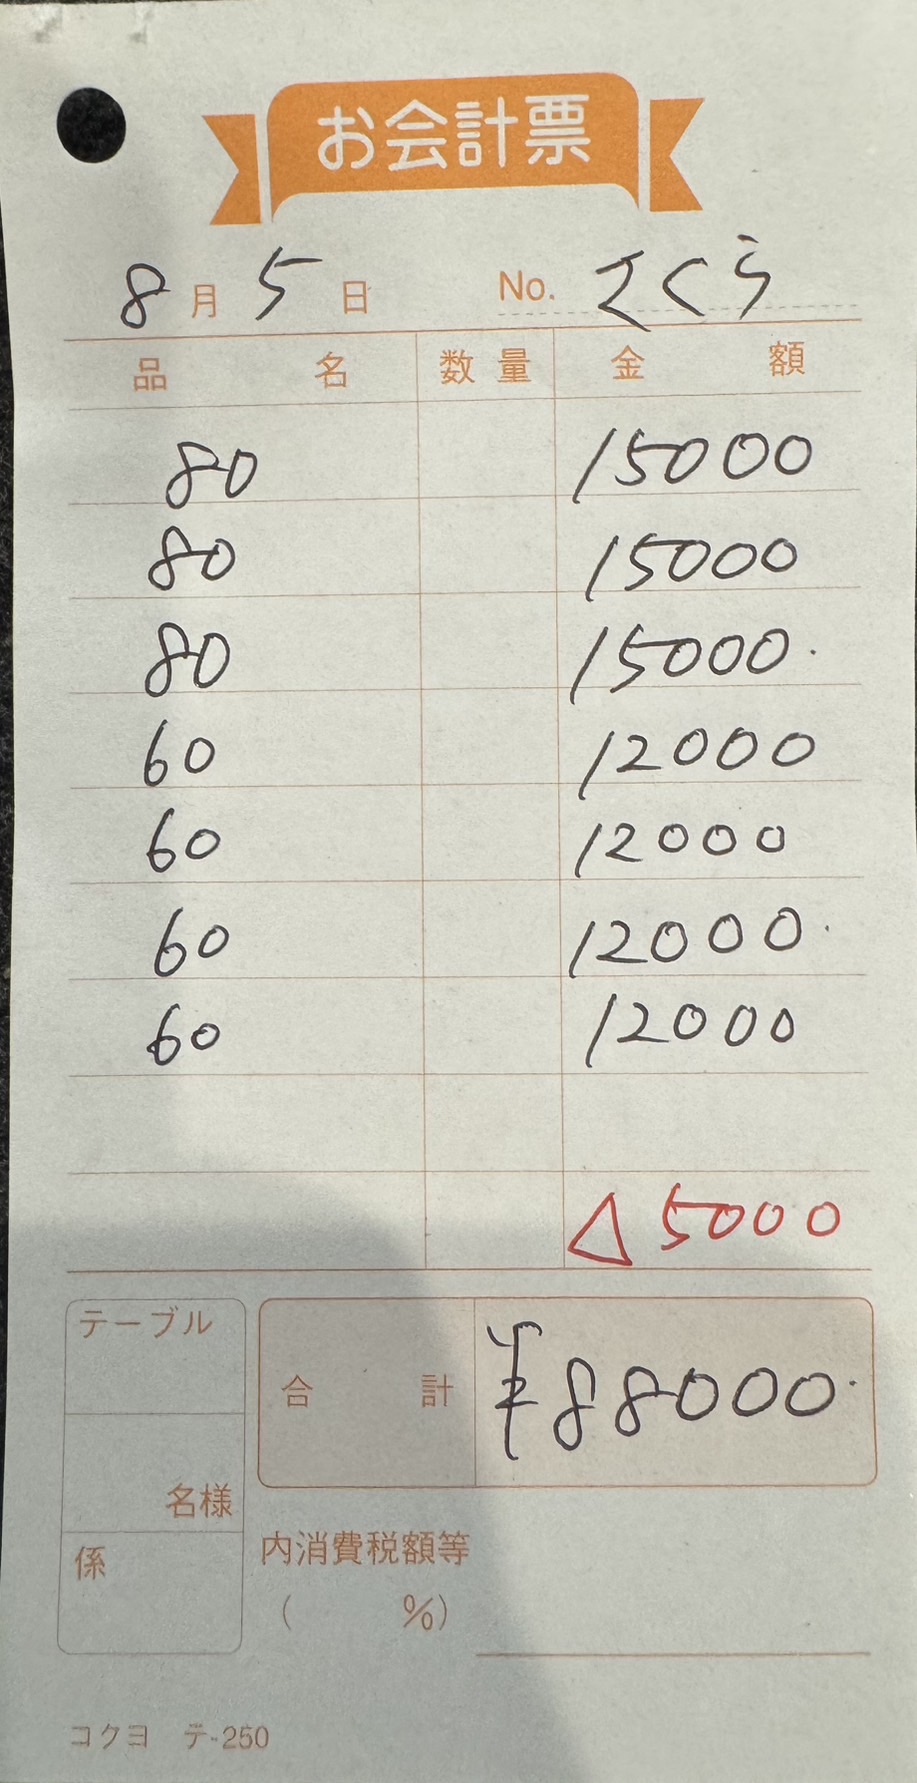 お会計票
8月5日 No. さくら
品名 数量 金額
80 15000
80 15000
80 15000.
60 12000
60 12000
60 12000.
60 12000
△5000
テーブル
合計 ¥88000.
名様
係
内消費税額等
( %)
コクヨ テ-250